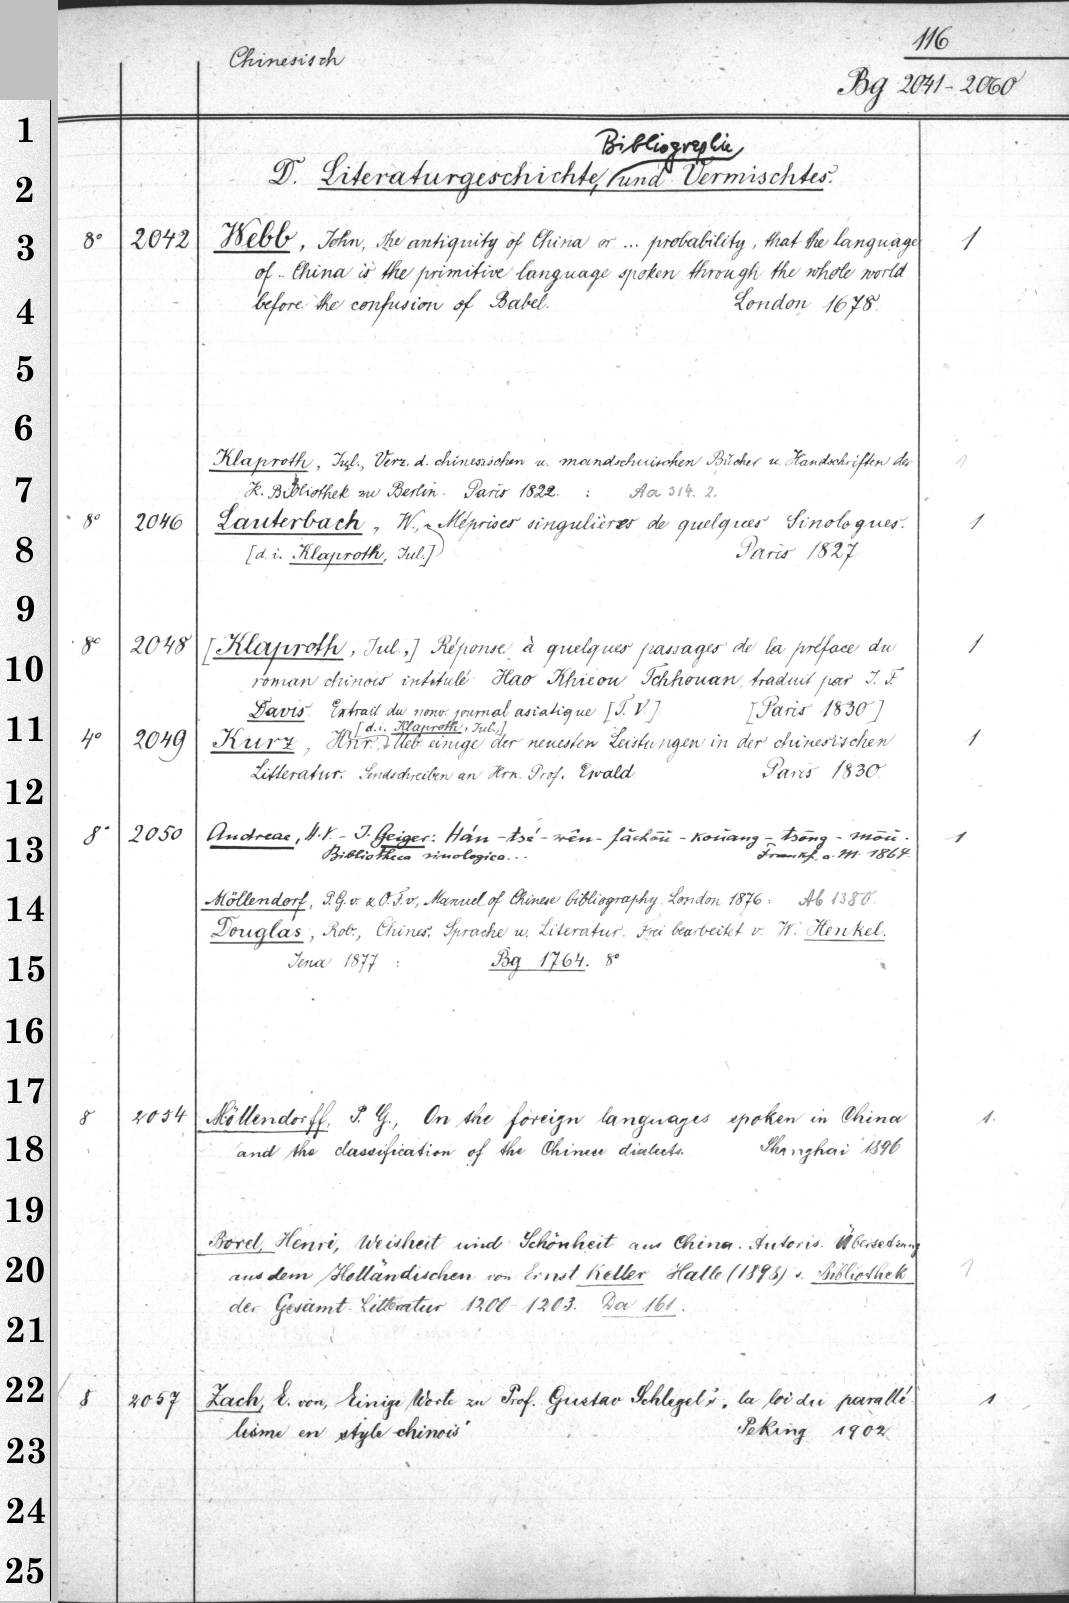 116
Chinesisch
Bg 2041-2060
Bibliographie
D. Literaturgeschichte, und Vermischtes.
8° 2042 Webb, John, the antiquity of China or ... probability, that the language 1
of .. China is the primitive language spoken through the whole world
before the confusion of Babel. London 1678.
Klaproth, Jul., Verz. d. chinesischen u. mandschuischen Bücher u. Handschriften der 1
K. Bibliothek zu Berlin. Paris 1822. : Aa 314. 2.
8° 2046 Lauterbach, W., Méprises singulières de quelques Sinologues. 1
[d. i. Klaproth, Jul.] Paris 1827
8° 2048 [Klaproth, Jul.,] Réponse à quelques passages de la préface du 1
roman chinois intitulé Hao Khieou Tchhouan, traduit par J. F.
Davis. Extrait du nouv. journal asiatique [T. V] [Paris 1830]
[d. i. Klaproth, Jul.]
4° 2049 Kurz, Hnr. Ueb. einige der neuesten Leistungen in der chinesischen 1
Litteratur. Sendschreiben an Hrn. Prof. Ewald. Paris 1830.
8° 2050 Andreae, V. - J. Geiger: Hán-tsé-wên-fǎchōū-kouang-tsōng-mōū. 1
Bibliotheca sinologica... Frankf. a. M. 1864.
Möllendorf, P. G. v. & O. F. v., Manuel of Chinese bibliography. London 1876: Ab 1380.
Douglas, Rob., Chines. Sprache u. Literatur. Frei bearbeitet v. W. Henkel.
Jena 1877 : Bg 1764. 8°
8 2054 Möllendorff, P. G., On the foreign languages spoken in China 1.
and the classification of the Chinese dialects. Shanghai 1896
Borel, Henri, Weisheit und Schönheit aus China. Autoris. Übersetzung
aus dem Holländischen von Ernst Keller Halle (1898) s. Bibliothek 1
der Gesamt-Litteratur 1200-1203. Da 161.
8 2057 Zach, E. von, Einige Worte zu Prof. Gustav Schlegel's „la loi du parallé- 1
lisme en style chinois" Peking 1902
1
2
3
4
5
6
7
8
9
10
11
12
13
14
15
16
17
18
19
20
21
22
23
24
25